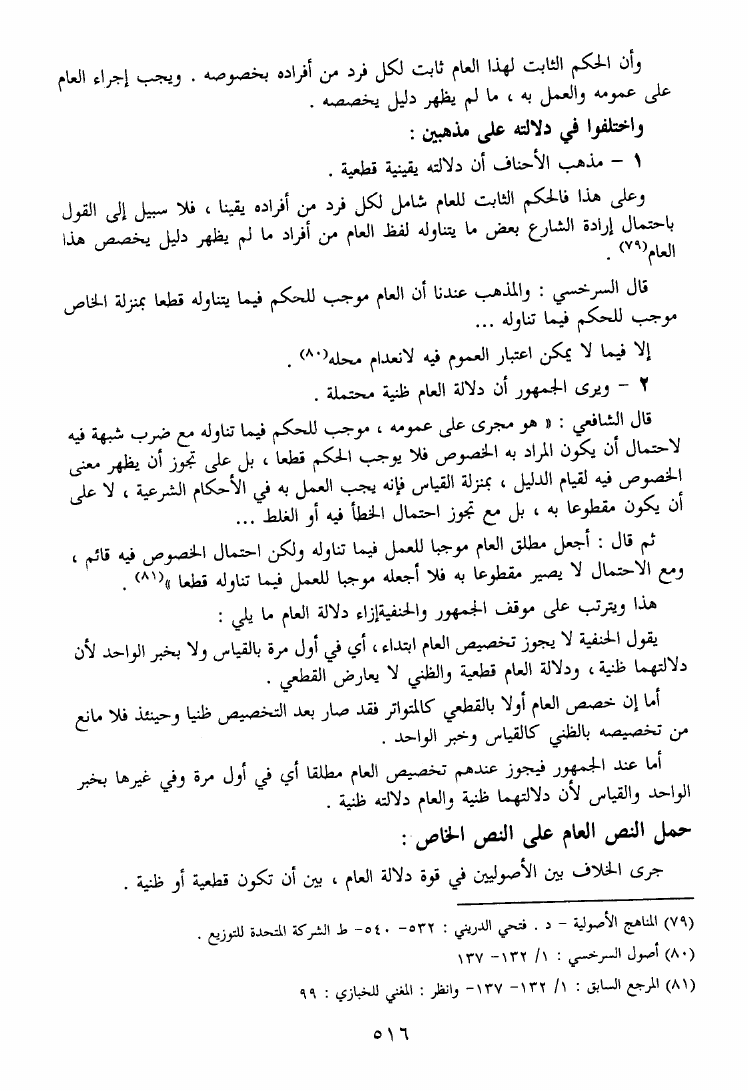 وأن الحكم الثابت لهذا العام ثابت لكل فرد من أفراده بخصوصه . ويجب إجراء العام
على عمومه والعمل به ، ما لم يظهر دليل يخصصه .
واختلفوا في دلالته على مذهبين :
١ – مذهب الأحناف أن دلالته يقينية قطعية .
وعلى هذا فالحكم الثابت للعام شامل لكل فرد من أفراده يقينا ، فلا سبيل إلى القول
باحتمال إرادة الشارع بعض ما يتناوله لفظ العام من أفراد ما لم يظهر دليل يخصص هذا
العام(٧٩) .
قال السرخسي : والمذهب عندنا أن العام موجب للحكم فيما يتناوله قطعا بمنزلة الخاص
موجب للحكم فيما تناوله ...
إلا فيما لا يمكن اعتبار العموم فيه لانعدام محله(٨٠) .
٢ – ويرى الجمهور أن دلالة العام ظنية محتملة .
قال الشافعي : « هو مجرى على عمومه ، موجب للحكم فيما تناوله مع ضرب شبهة فيه
لاحتمال أن يكون المراد به الخصوص فلا يوجب الحكم قطعا ، بل على تجوز أن يظهر معنى
الخصوص فيه لقيام الدليل ، بمنزلة القياس فإنه يجب العمل به في الأحكام الشرعية ، لا على
أن يكون مقطوعا به ، بل مع تجوز احتمال الخطأ فيه أو الغلط ...
ثم قال : أجعل مطلق العام موجبا للعمل فيما تناوله ولكن احتمال الخصوص فيه قائم ،
ومع الاحتمال لا يصير مقطوعا به فلا أجعله موجبا للعمل فيما تناوله قطعا »(٨١) .
هذا ويترتب على موقف الجمهور والحنفيةإزاء دلالة العام ما يلي :
يقول الحنفية لا يجوز تخصيص العام ابتداء، أي في أول مرة بالقياس ولا بخبر الواحد لأن
دلالتهما ظنية ، ودلالة العام قطعية والظني لا يعارض القطعي .
أما إن خصص العام أولا بالقطعي كالمتواتر فقد صار بعد التخصيص ظنيا وحينئذ فلا مانع
من تخصيصه بالظني كالقياس وخبر الواحد .
أما عند الجمهور فيجوز عندهم تخصيص العام مطلقا أي في أول مرة وفي غيرها بخبر
الواحد والقياس لأن دلالتهما ظنية والعام دلالته ظنية .
حمل النص العام على النص الخاص :
جرى الخلاف بين الأصوليين في قوة دلالة العام ، بين أن تكون قطعية أو ظنية .
(٧٩) المناهج الأصولية – د . فتحي الدريني : ٥٣٢– ٥٤٠– ط الشركة المتحدة للتوزيع .
(٨٠) أصول السرخسي : ١/ ١٣٢– ١٣٧
(٨١) المرجع السابق : ١/ ١٣٢– ١٣٧– وانظر : المغني للخبازي : ٩٩
٥١٦